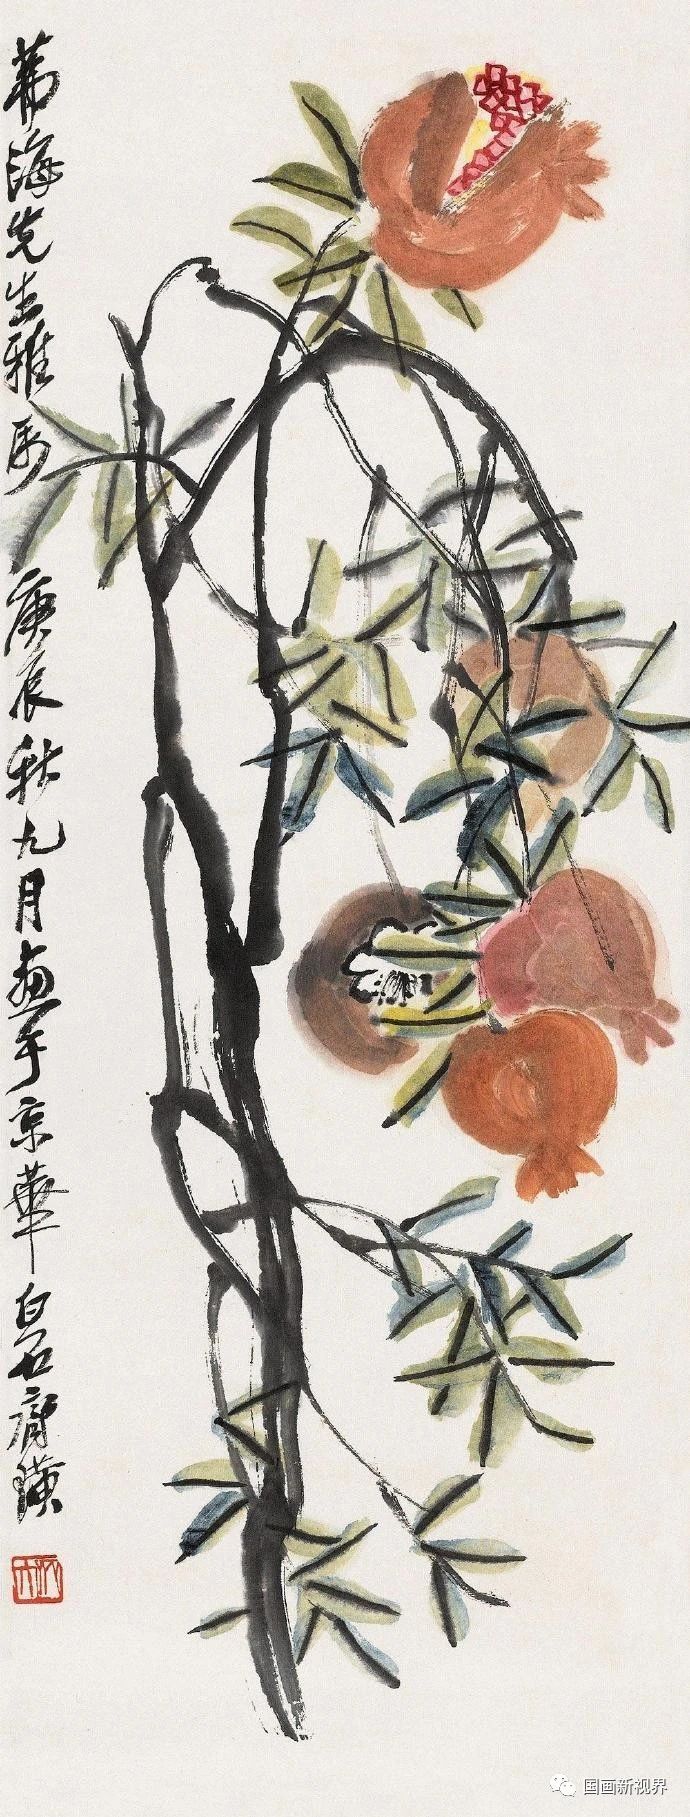 海先生雅属
庚辰秋九月画于京华白石齐璜
国画新视界